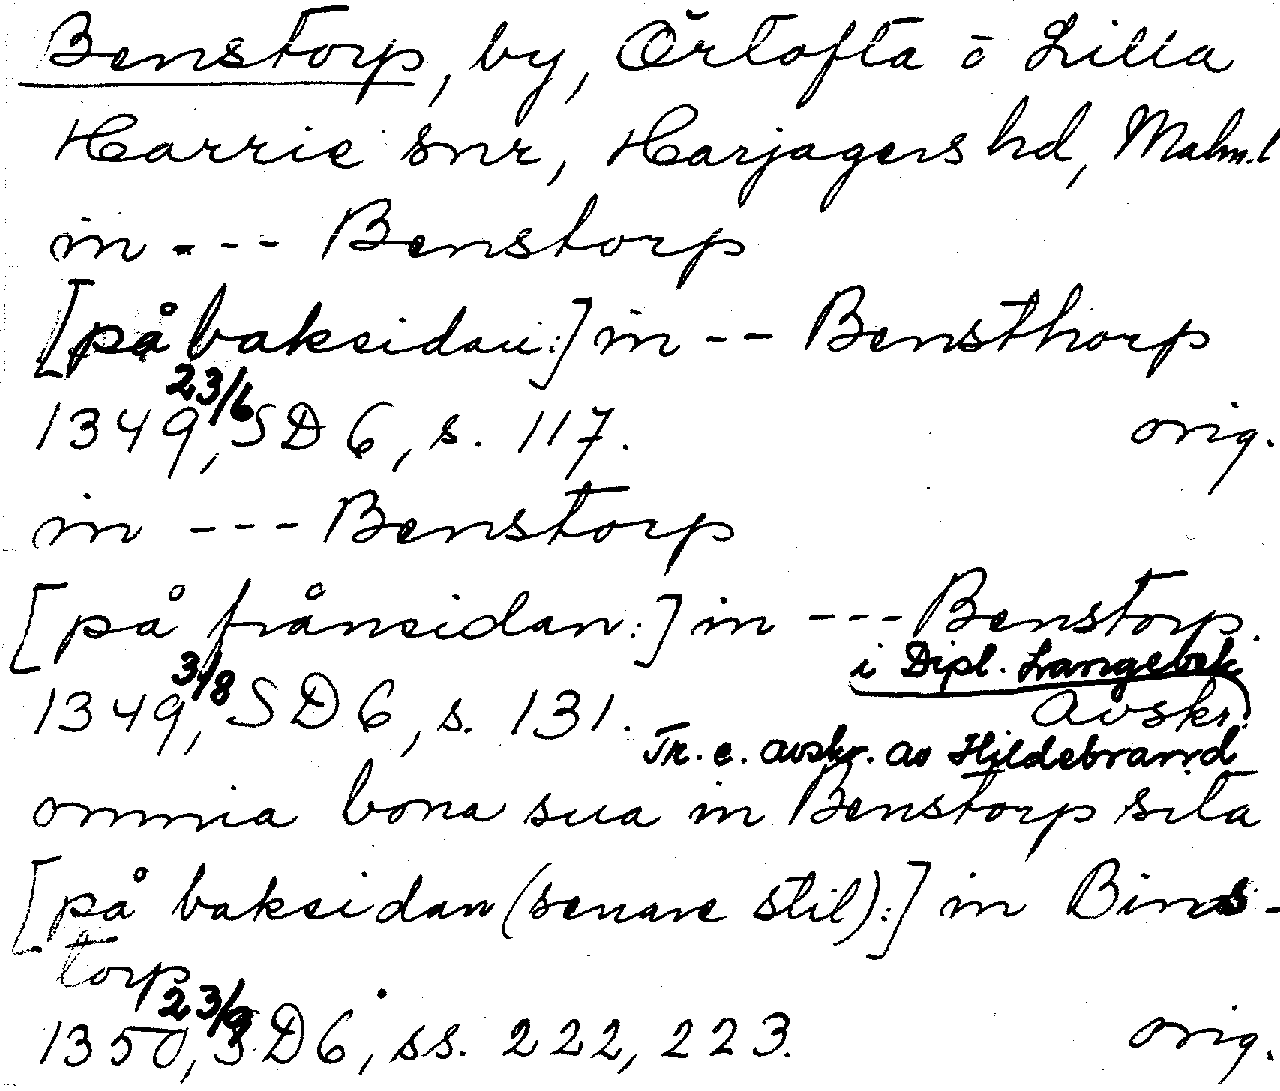 Benstorp, by, Örtofta o Lilla
Harrie snr, Harjagers hd, Malm.l
in - - - Benstorp
[på baksidan:] in - - Bensthorp
1349 23/6, SD 6, s. 117. orig.
in - - - Benstorp
[på frånsidan:] in - - - Benstorp.
i Dipl. Langebek.
1349 3/8, SD 6, s. 131. avskr.
Tr. e. avskr. av Hildebrand
omnia bona sua in Benstorp sita
[på baksidan (senare stil):] in Bins-
torp
1350 23/9, SD 6, ss. 222, 223. orig.